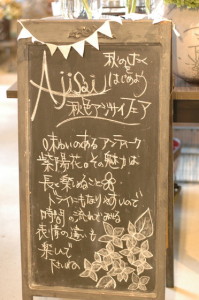 秋のたのしみ
はじめよう
Ajisai
秋色アジサイフェア
味わいのあるアンティーク
紫陽花。その魅力は
長く楽しめること
ドライにもなりやすいので
時間の流れでみる
表情の違いも
楽しんで
下さいね